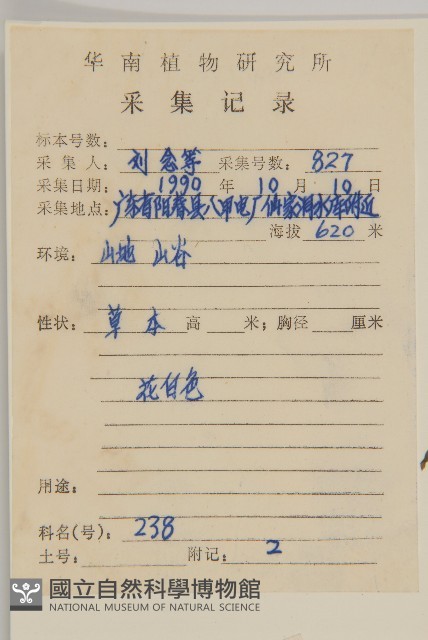 华南植物研究所
采集记录
标本号数：
采集人：刘念等 采集号数：827
采集日期：1990年10月10日
采集地点：广东省阳春县八甲电厂仙家洞水库附近
海拔620米
环境：山地 山谷
性状：草本 高 米；胸径 厘米
花白色
用途：
科名(号)：238
土号： 附记：2
國立自然科學博物館
NATIONAL MUSEUM OF NATURAL SCIENCE